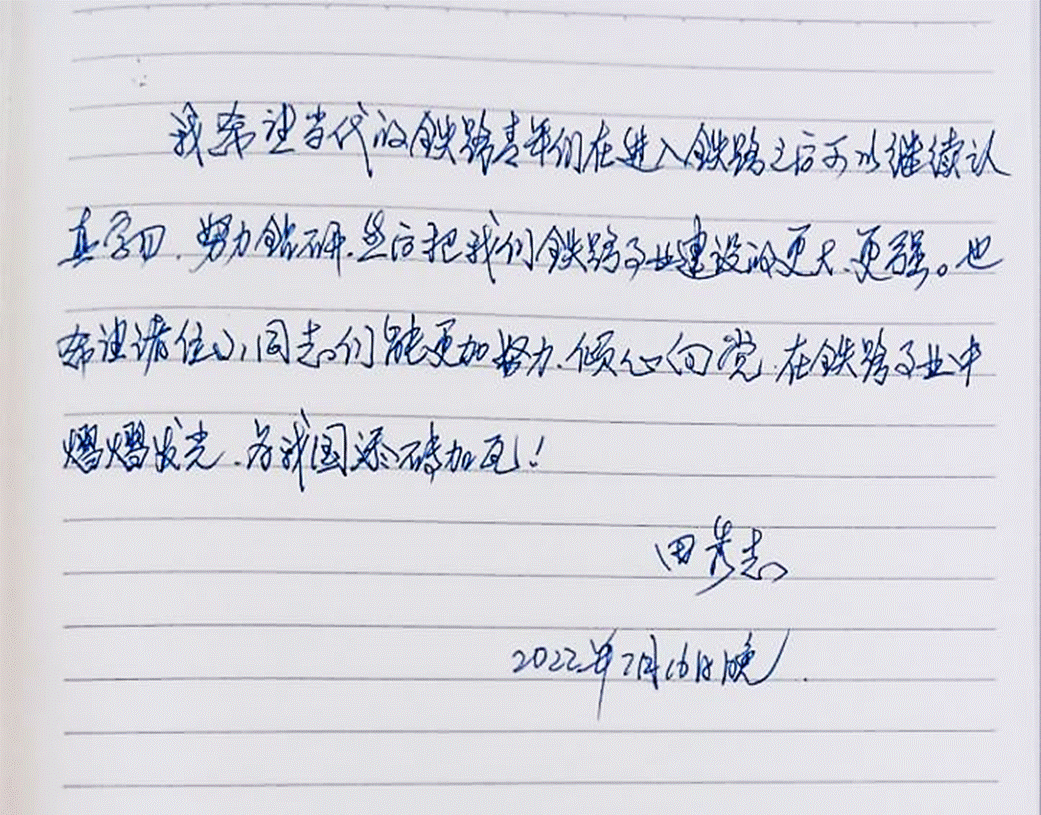 我希望当代的铁路青年们在进入铁路之后可以继续认
真学习，努力钻研，然后把我们铁路事业建设的更大、更强。也
希望诸位小同志们能更加努力，倾心向党，在铁路事业中
熠熠发光，为我国添砖加瓦！
田志
2022年7月16日晚